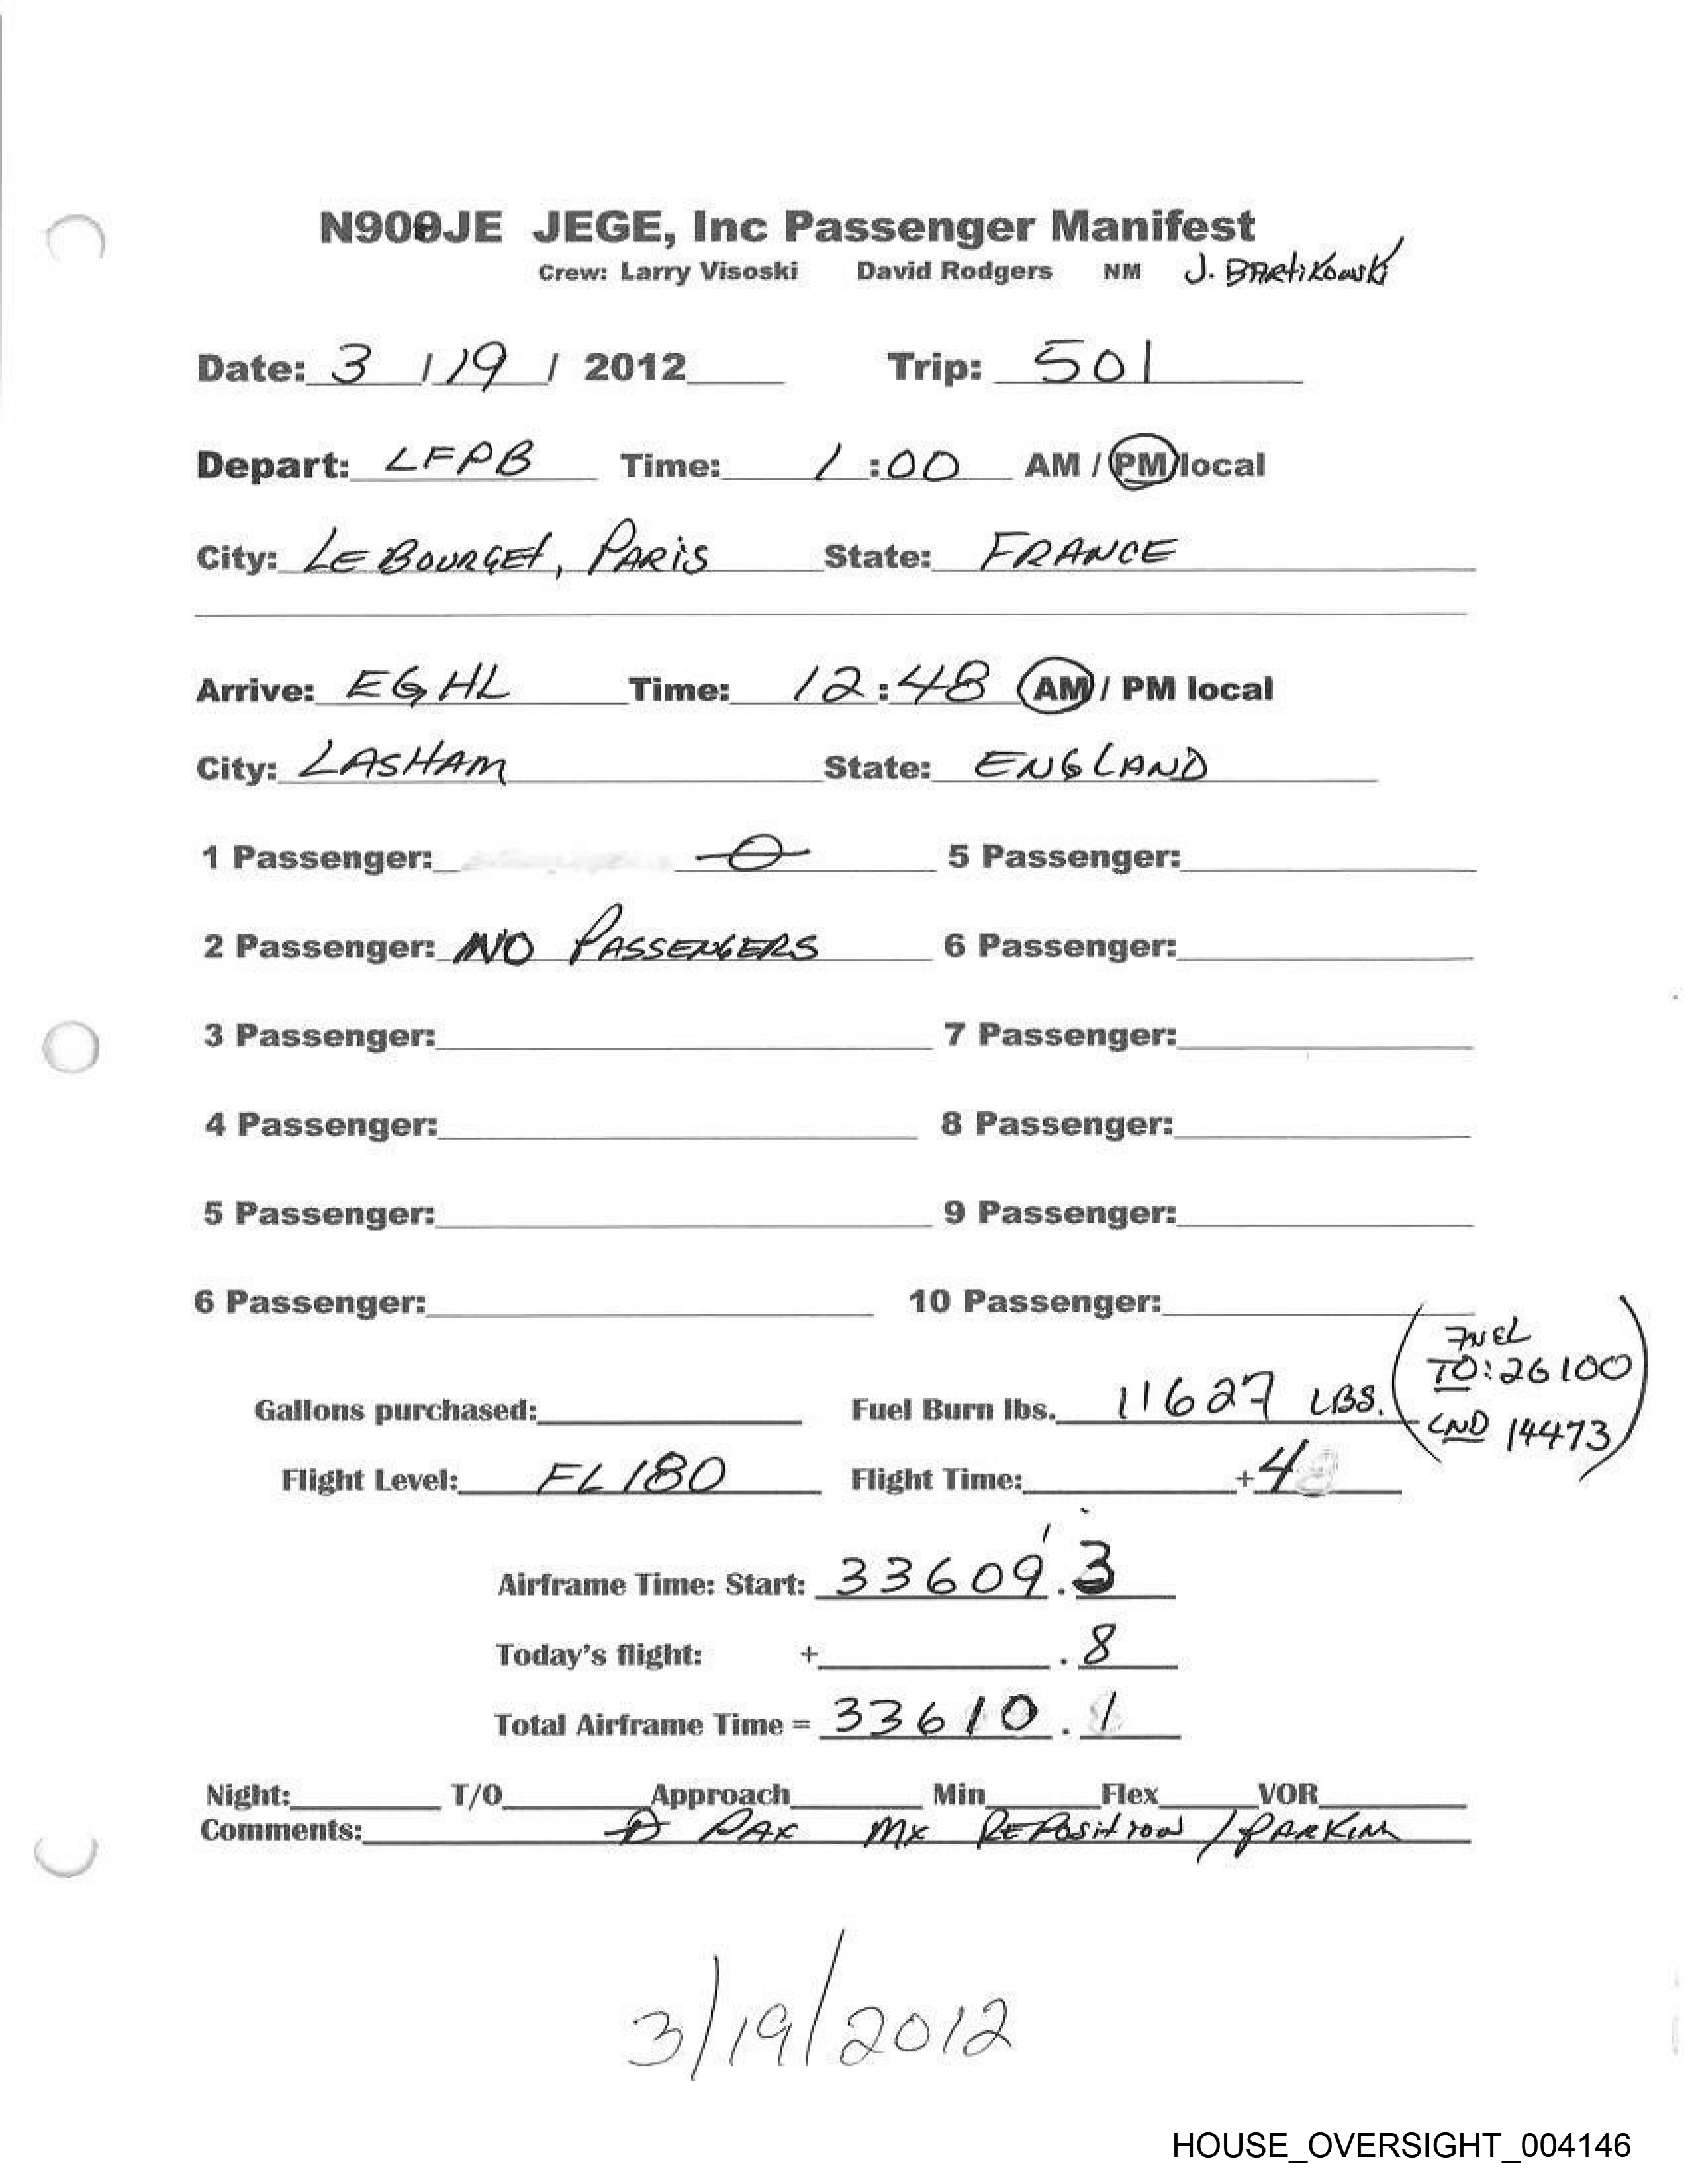 N909JE JEGE, Inc Passenger Manifest
Crew: Larry Visoski David Rodgers NM J. BARtiKowski
Date: 3 / 19 / 2012 Trip: 501
Depart: LFPB Time: 1 :00 AM / PM local
City: LE BOURGEt, PARiS State: FRANCE
Arrive: EGHL Time: 12:48 AM / PM local
City: LASHAM State: ENGLAND
1 Passenger: 0 5 Passenger:
2 Passenger: NO PASSENGERS 6 Passenger:
3 Passenger: 7 Passenger:
4 Passenger: 8 Passenger:
5 Passenger: 9 Passenger:
6 Passenger: 10 Passenger:
FUEL
TO: 26100
Gallons purchased: Fuel Burn lbs. 11627 LBS.
LND 14473
Flight Level: FL 180 Flight Time: +48
Airframe Time: Start: 33609.3
Today's flight: + .8
Total Airframe Time = 33610.1
Night: T/O Approach Min Flex VOR
Comments: 0 PAX MX REPOSition / PARKING
3/19/2012
HOUSE_OVERSIGHT_004146